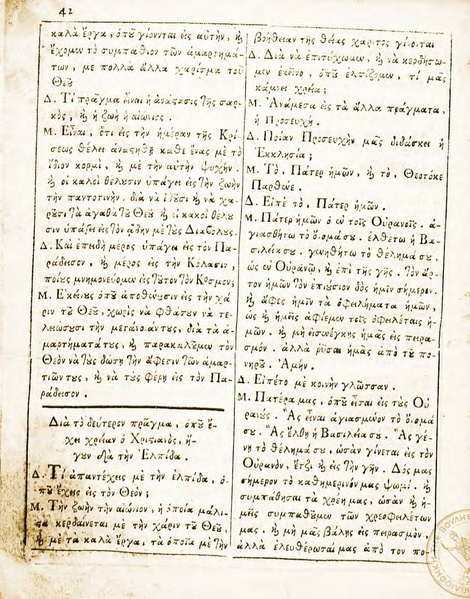 42
καλὰ ἔργα, ὁπȣ̃ γίονται εἰς αὐτὴν, ϗ
ἔχομεν τὸ συμπάθιον τῶν ἁμαρτημά-
των, με πολλὰ ἄλλα χαρίσμα τοῦ
Θεȣ̃
Δ. Τί πρᾶγμα εἶναι ἡ ἀνάστασις τῆς σαρ-
κὸς, ϗ ἡ ζωὴ αἰώνιος.
Μ. Εἶναι, ὅτι εἰς τὴν ἡμέραν τῆς Κρί
σεως θέλει ἀναστηθῆ καθε ἕνας μὲ τὸ
ἴδιον κορμὶ, ϗ μὲ τὴν αὐτὴν ψυχήν.
ϗ οἱ καλοὶ θέλȣσιν ὑπάγει εἰς τὴν ζωὴν
τὴν παντοτινὴν, διὰ νὰ ϗ νὰ χα-
ρȣ͂σι τὰ ἀγαθὰ τȣ͂ Θεȣ͂ ϗ οἱ κακοὶ θέλȣ
σιν ὑπάγει εἰς τὸν ᾅδην μὲ τȣ̀ς Διαβόλȣς.
Δ. Καὶ ἐπειδὴ μέρος ὑπάγει εἰς τὸν Πα-
ράδεισον, ϗ μέρος εἰς τὴν Κόλασιν,
ποίȣς μνημονεύομεν εἰς τȣ͂τον τὸν Κόσμον;
Μ. Ἐκείνȣς ὁπȣ̃ ἀποθνήσιν εἰς τὴν χά
ριν τȣ͂ Θεȣ͂, χωρὶς νὰ φθάσȣν νὰ τε-
λειώσȣσι τὴν διὰ τὰ ἁ-
μαρτήματάτȣς, ϗ παρακαλȣ͂μεν τὸν
Θεὸν νὰ τȣ̀ς δώσῃ τὴν ἄφεσιν τῶν ἁμαρ-
τιῶν τȣς, ϗ νὰ τȣ̀ς φέρῃ εἰς τὸν Πα-
ράδεισον.
Διὰ τὸ δεύτερον πρᾶγμα, ὁπȣ̃ ἔ-
χει χρείαν ὁ Χριστιανὸς, ἤ-
γȣν διὰ τὴν Ἐλπίδα.
Δ. Τί ἀπαντέχεις μὲ τὴν ἐλπίδα, ὁ-
πȣ̃ ἔχεις εἰς τὸν Θεόν;
Μ. Τὴν ζωὴν τὴν αἰώνιον, ἡ ὁποία μάλι-
τα κερδαίνεται μὲ τὴν χάριν τȣ͂ Θεȣ͂,
ϗ μὲ τὰ καλὰ ἔργα, τὰ ὁποῖα μὲ τὴν
βοήθειαν τῆς θείας χάριτος γίνονται
Δ. Διὰ νὰ ἐπιτύχωμεν, ϗ νὰ κερδήσω-
μεν ἐκεῖνο, ὁπȣ̃ ἐλπίζομεν, τί μᾶς
κάμνει χρεία;
Μ. Ἀνάμεσα εἰς τὰ ἄλλα πράγματα,
ἡ Προσευχή.
Δ. Ποίαν Προσευχὴν μᾶς διδάσκει ἡ
Ἐκκλησία;
Μ. Τὸ, Πάτερ ἡμῶν, ϗ τὸ, Θεοτόκε
Παρθένε.
Δ. Εἰπὲ τὸ, Πάτερ ἡμῶν.
Μ. Πάτερ ἡμῶν ὁ ἐν τοῖς Οὐρανοῖς. ἁ-
γιασθήτω τὸ ὄνομάσȣ. ἐλθέτω ἡ Βα-
σιλείασȣ. γενηθήτω τὸ θέλημάσȣ,
ὡς ἐν Οὐρανῷ, ϗ ἐπὶ τῆς γῆς. Τὸν ἄρ-
τον ἡμῶν τὸν ἐπιύσιον δὸς ἡμῖν σήμερον.
ϗ ἄφες ἡμῖν τὰ ὀφειλήματα ἡμῶν,
ὡς ϗ ἡμεῖς ἀφίεμεν τοῖς ὀφειλέταις ἡ-
μῶν. ϗ μὴ εἰσενέγκῃς ἡμᾶς εἰς πειρα-
σμόν. ἀλλὰ ῥῦσαι ἡμᾶς ἀπὸ τȣ͂ πο-
νηρȣ͂. Ἀμήν.
Δ. Εἰπέτο μὲ κοινὴν γλῶσσαν.
Μ. Πατέρα μας, ὁπȣ̃ εἶσαι εἰς τȣ̀ς Οὐ
ρανȣ́ς. Ἂς εἶναι ἁγιασμένον τὸ ὄνομά
σȣ. Ἂς ἔλθῃ ἡ Βασιλείασȣ. Ἂς γέ-
νῃ τὸ θέλημάσȣ, ὡσὰν γίνεται εἰς τὸν
Οὐρανὸν, ἔτζι ϗ εἰς τὴν γῆν. Δός μας
σήμερον τὸ καθημερινόν μας ψωμί. ϗ
συμπάθησαι τὰ χρέη μας, ὡσὰν ϗ ἡ-
μεῖς συμπαθȣ͂μεν τῶν χρεοφειλέτων
μας. ϗ μὴ μᾶς βάλῃς εἰς πειρασμὸν,
ἀλλὰ ἐλευθέρωσαί μας ἀπὸ τὸν πο-